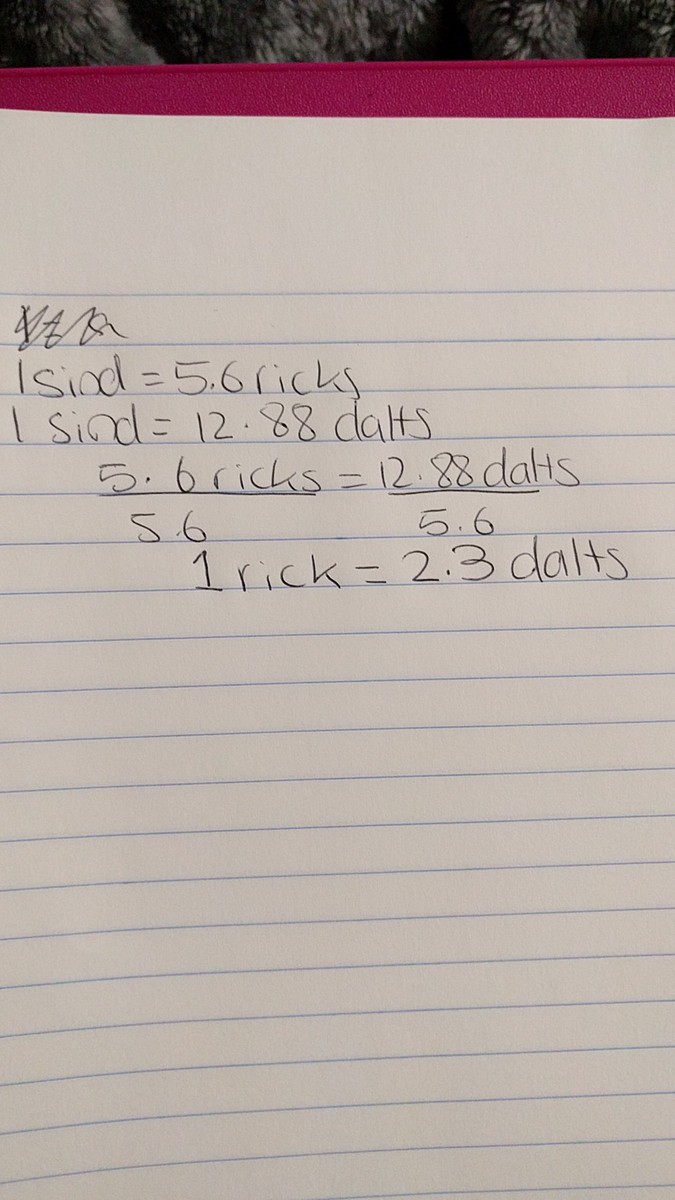 1 siod = 5.6 ricks
1 siod = 12.88 dalts
5.6 ricks = 12.88 dalts
5.6 5.6
1 rick = 2.3 dalts